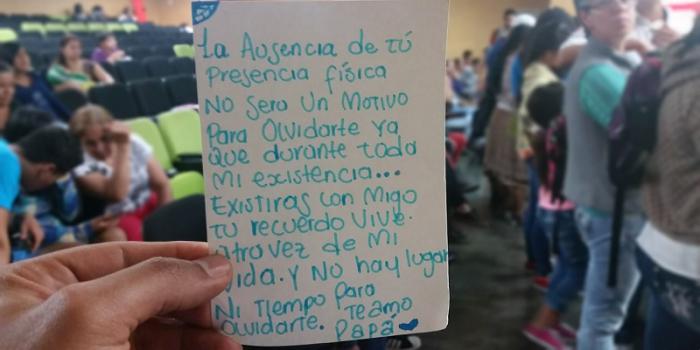 La Ausencia de tú
Presencia física
No sera Un Motivo
Para Olvidarte ya
que durante toda
Mi existencia...
Existiras con Migo
tu recuerdo Vive.
atravez de Mi
vida. y No hay lugar
Ni Tiempo para
Olvidarte. Te amo
Papá